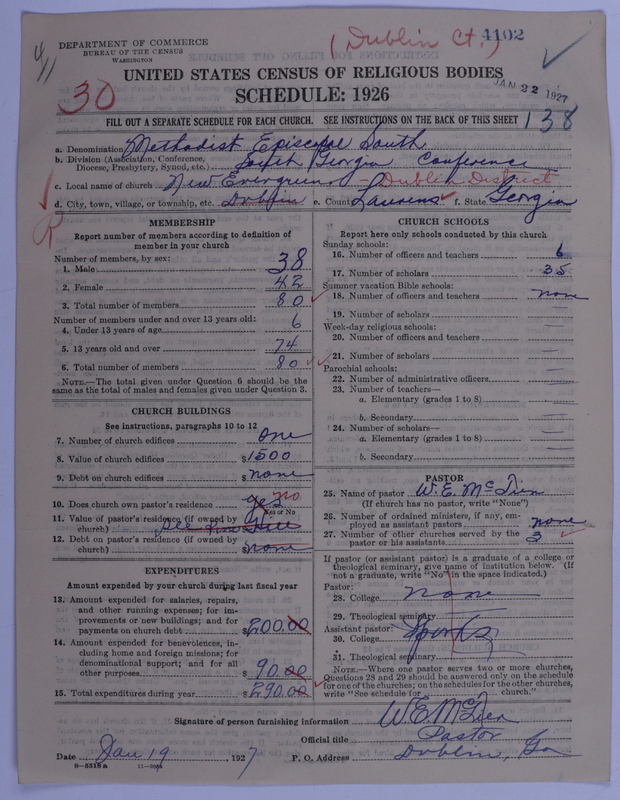 DEPARTMENT OF COMMERCE
BUREAU OF THE CENSUS
WASHINGTON
(Dublin Ct.)
4102
4/11
30
UNITED STATES CENSUS OF RELIGIOUS BODIES
SCHEDULE: 1926
JAN 22 1927
138
FILL OUT A SEPARATE SCHEDULE FOR EACH CHURCH. SEE INSTRUCTIONS ON THE BACK OF THIS SHEET
a. Denomination Methodist Episcopal South
b. Division (Association, Conference, Diocese, Presbytery, Synod, etc.) South Georgia Conference
c. Local name of church New Evergreen Dublin District
d. City, town, village, or township, etc. Dublin e. County Laurens f. State Georgia
MEMBERSHIP
Report number of members according to definition of member in your church
Number of members, by sex:
1. Male 38
2. Female 42
3. Total number of members 80
Number of members under and over 13 years old:
4. Under 13 years of age 6
5. 13 years old and over 74
6. Total number of members 80
NOTE.—The total given under Question 6 should be the same as the total of males and females given under Question 3.
CHURCH BUILDINGS
See instructions, paragraphs 10 to 12
7. Number of church edifices One
8. Value of church edifices $1500
9. Debt on church edifices $none
10. Does church own pastor's residence yes no
Yes or No
11. Value of pastor's residence (if owned by church)
12. Debt on pastor's residence (if owned by church) $none
EXPENDITURES
Amount expended by your church during last fiscal year
13. Amount expended for salaries, repairs, and other running expenses; for improvements or new buildings; and for payments on church debt $200.00
14. Amount expended for benevolences, including home and foreign missions; for denominational support; and for all other purposes $90.00
15. Total expenditures during year $290.00
CHURCH SCHOOLS
Report here only schools conducted by this church
Sunday schools:
16. Number of officers and teachers 6
17. Number of scholars 35
Summer vacation Bible schools:
18. Number of officers and teachers none
19. Number of scholars —
Week-day religious schools:
20. Number of officers and teachers —
21. Number of scholars —
Parochial schools:
22. Number of administrative officers —
23. Number of teachers—
a. Elementary (grades 1 to 8) —
b. Secondary —
24. Number of scholars—
a. Elementary (grades 1 to 8) —
b. Secondary —
PASTOR
25. Name of pastor W. E.
(If church has no pastor, write "None")
26. Number of ordained ministers, if any, employed as assistant pastors none
27. Number of other churches served by the pastor or his assistants 3
If pastor (or assistant pastor) is a graduate of a college or theological seminary, give name of institution below. (If not a graduate, write "No" in the space indicated.)
Pastor:
28. College none
29. Theological seminary
Assistant pastor:
30. College
31. Theological seminary
NOTE.—Where one pastor serves two or more churches, Questions 28 and 29 should be answered only on the schedule for one of the churches; on the schedules for the other churches, write "See schedule for ________ church."
Signature of person furnishing information W. E.
Official title Pastor
Date Jan 19, 1927 P. O. Address Dublin, Ga
8-5518a